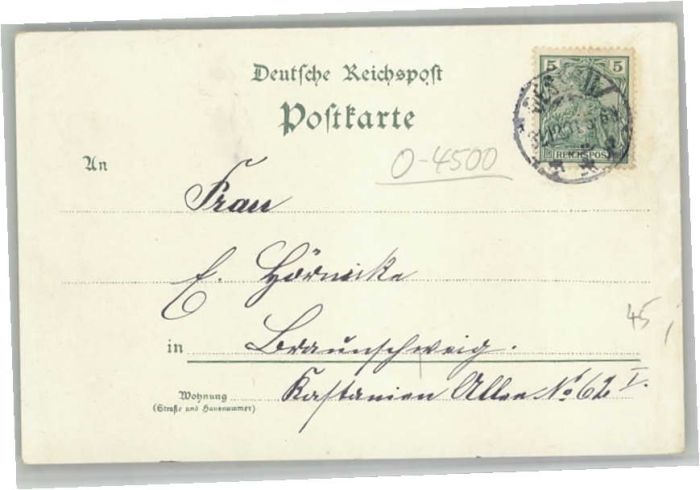 Deutsche Reichspost
Postkarte
5 5
REICHSPOST
An
O-4500
Frau
E. Hörnicke
45
in Braunschweig.
Wohnung
(Straße und Hausnummer)
Kastanien Allee No 62 I.